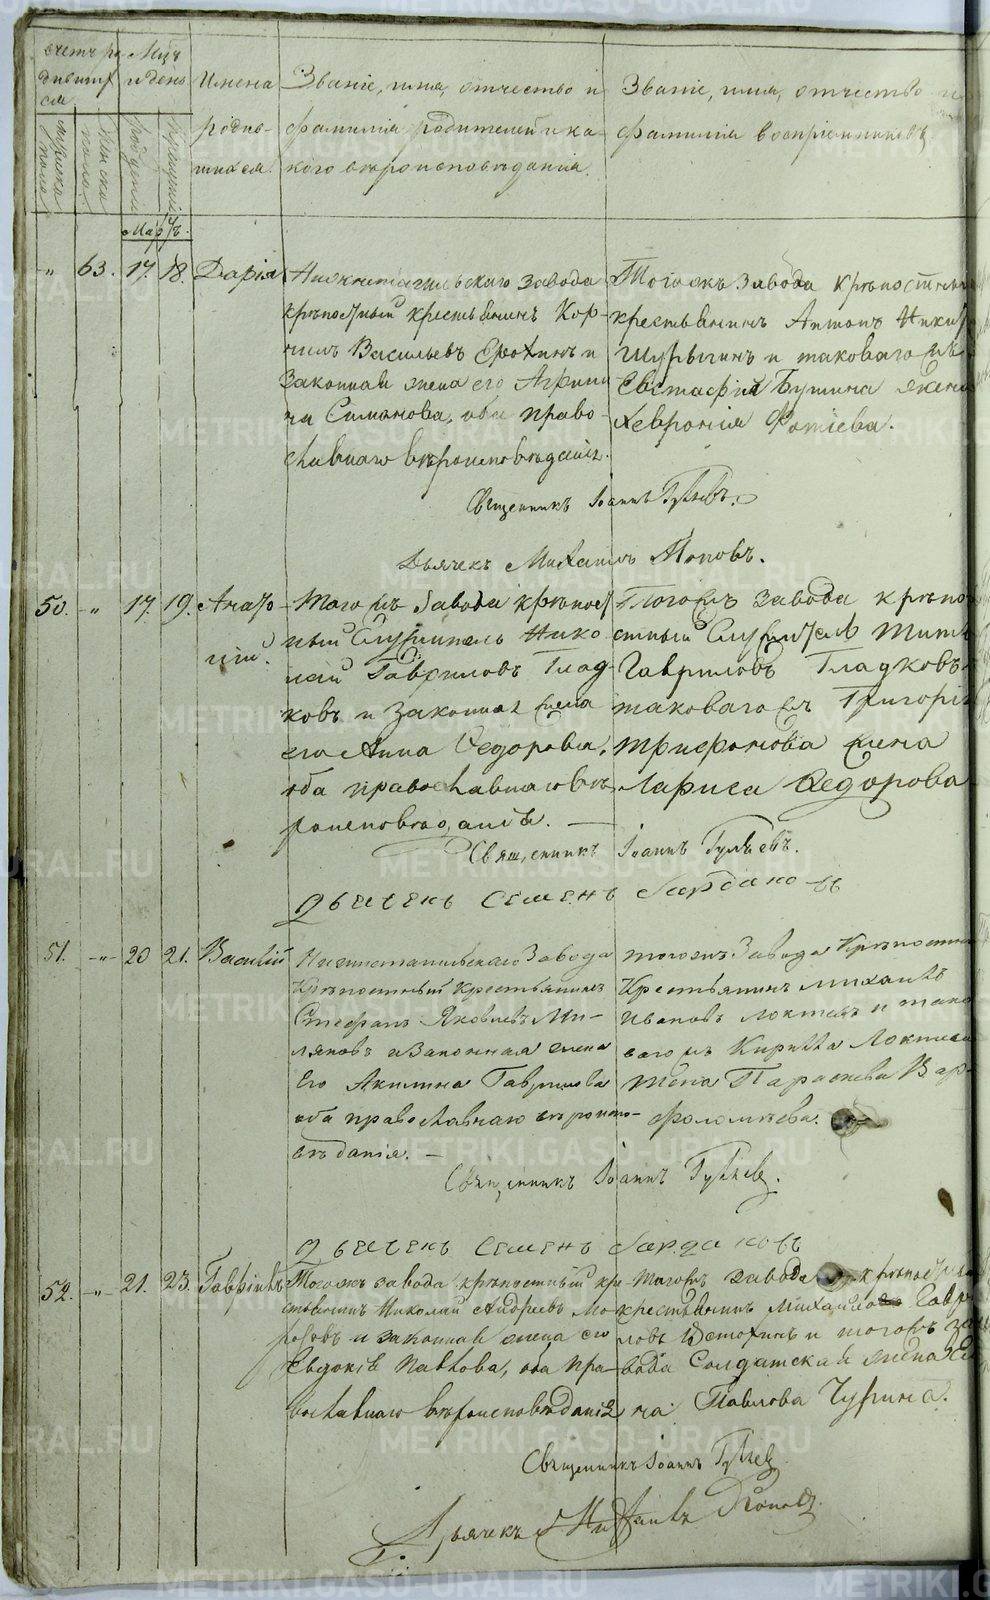 счетъ ро
дившых
ся
Мцъ
и день
Имена
родив-
шихся.
Званіе, имя, отчество и
фамилія родителей и ка-
кого вѣроисповѣданія.
Званіе, имя, отчество и
фамилія воспріемниковъ
мужеска
пола
женска
пола
рожденія
крещенія
Мартъ.
" 63. 17. 18. Дарія
Нижнетагильскаго завода
крѣпостный крестьянинъ Кор-
нилъ Васильевъ Ерохинъ и
законная жена его Агрипи
на Симонова, оба право-
славнаго вѣроисповѣданія.
Тогожъ завода крѣпостный
крестьянинъ Антонъ Ники
Шурыгинъ и таковагожъ
Евстафія Бутина жена
Хевронія Фотіева.
Священникъ Іоаннъ Гуляевъ.
Дьячекъ Михаилъ Поповъ.
50. " 17. 19. Анато
лій.
Тогожъ завода крѣпост
ный служитель Нико
лай Гавриловъ Глад-
ковъ и законная жена
его Анна Ѳедорова,
оба православнаго вѣ
роисповѣданія.
Тогожъ завода крѣпо
стный служитель
Гавриловъ Гладковъ
таковагожъ Григорія
Трифонова жена
Лариса Ѳедорова
Священникъ Іоаннъ Гуляевъ.
Дьячекъ Семенъ
51. -"- 20 21. Василій
Нижнетагильскаго Завода
Крѣпостный Крестьянинъ
Стефанъ Яковлевъ Ми-
ляновъ и Законная жена
Его Акилина Гаврилова
оба православнаго вѣроиспо-
вѣданія. —
тогожъ Завода Крѣпостный
Крестьянинъ Михаилъ
Ивановъ Локтевъ и тако
вагожъ Кирилла Локтева
жена Параскева Вар-
фоломѣева.
Священникъ Іоаннъ Гуляевъ.
Дьячекъ Семенъ
52. -"- 21. 23. Гавріилъ
Тогожъ завода крѣпостный кре-
стьянинъ Николай Андреевъ Мо
роковъ и законная жена его
Евдокія Павлова, оба пра-
вославнаго вѣроисповѣданія
Тогожъ завода крѣпостный
крестьянинъ Михайло Гаври
ловъ и тогожъ за
вода Солдатская жена
на Павлова Чурина.
Священникъ Іоаннъ Гуляевъ
Дьячекъ Михаилъ Поповъ.
METRIKI.GASO-URAL.RU